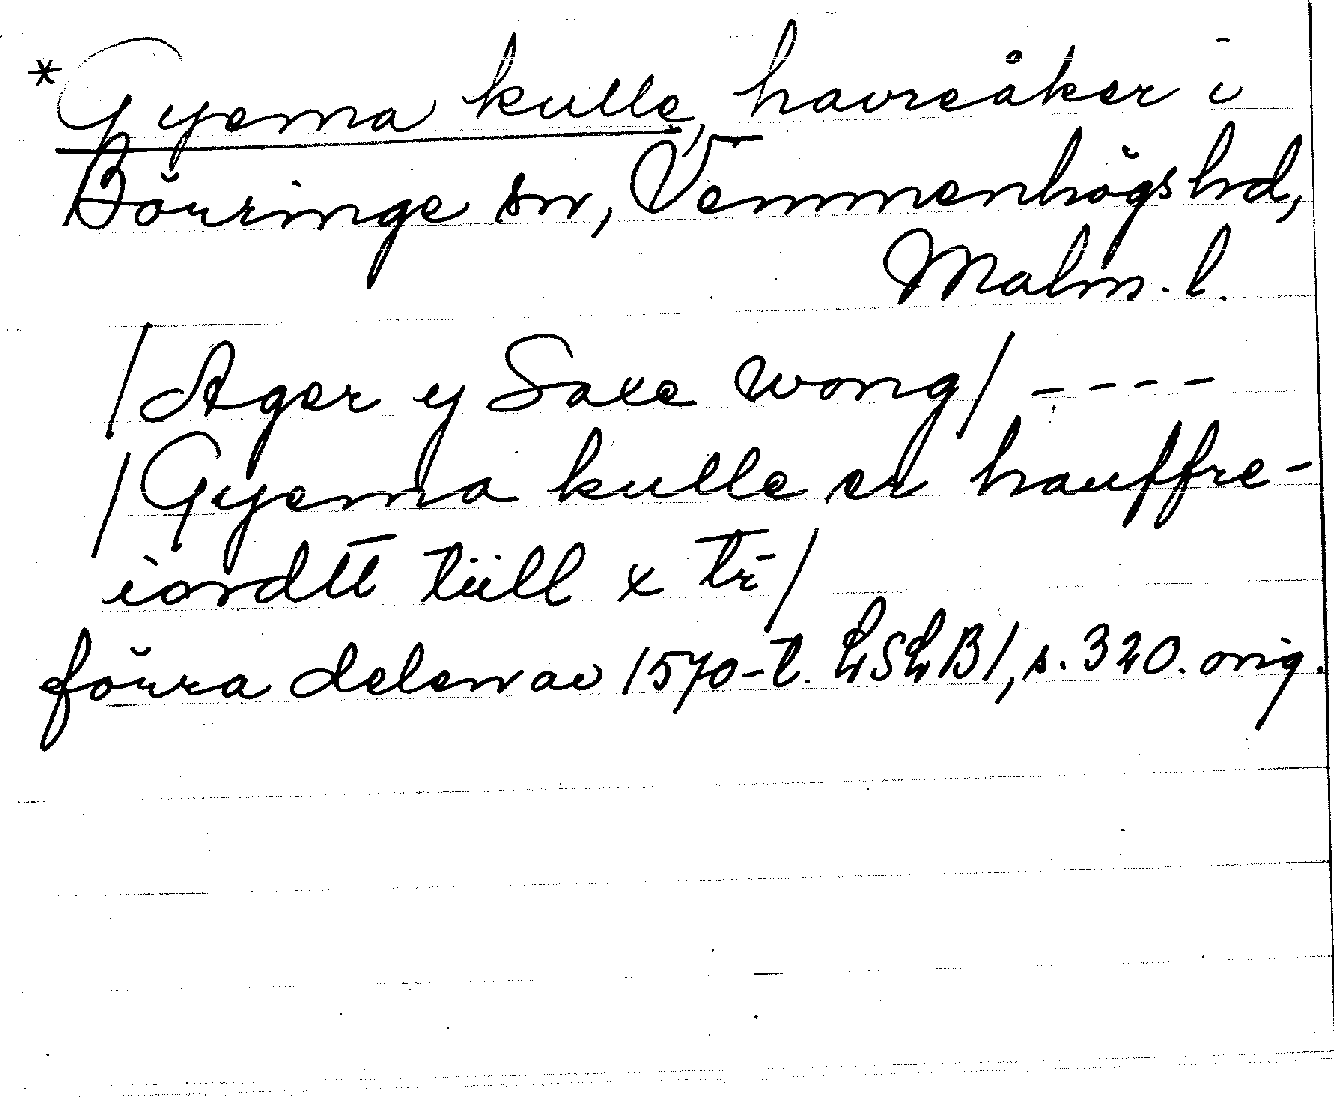 *Gyerna kulle, havreåker i
Börringe sn, Vemmenhögs hd,
Malm. l.
/Ager y Saxe wong/ ----
/Gyerna kulle er hauffre-
iordtt tiill x
förra delen av 1570-t. LSLB1, s. 320. orig.